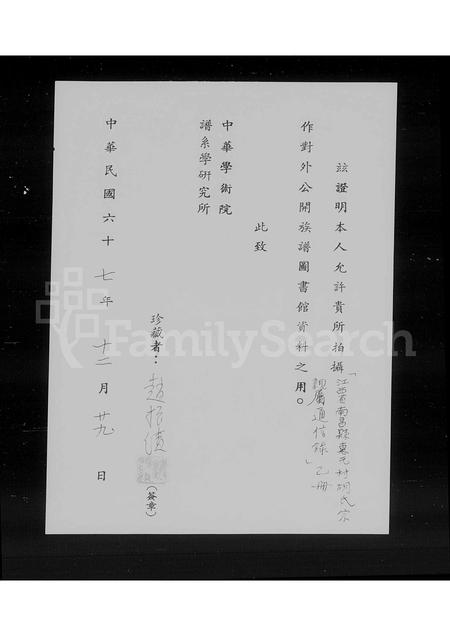 茲證明本人允許貴所拍攝「江西省南昌縣東元村胡氏宗
親屬通信錄」乙冊
作對外公開族譜圖書館資料之用。
此致
中華學術院
譜系學研究所
珍藏者：趙振績
(簽章)
中華民國六十七年十二月廿九日
FamilySearch